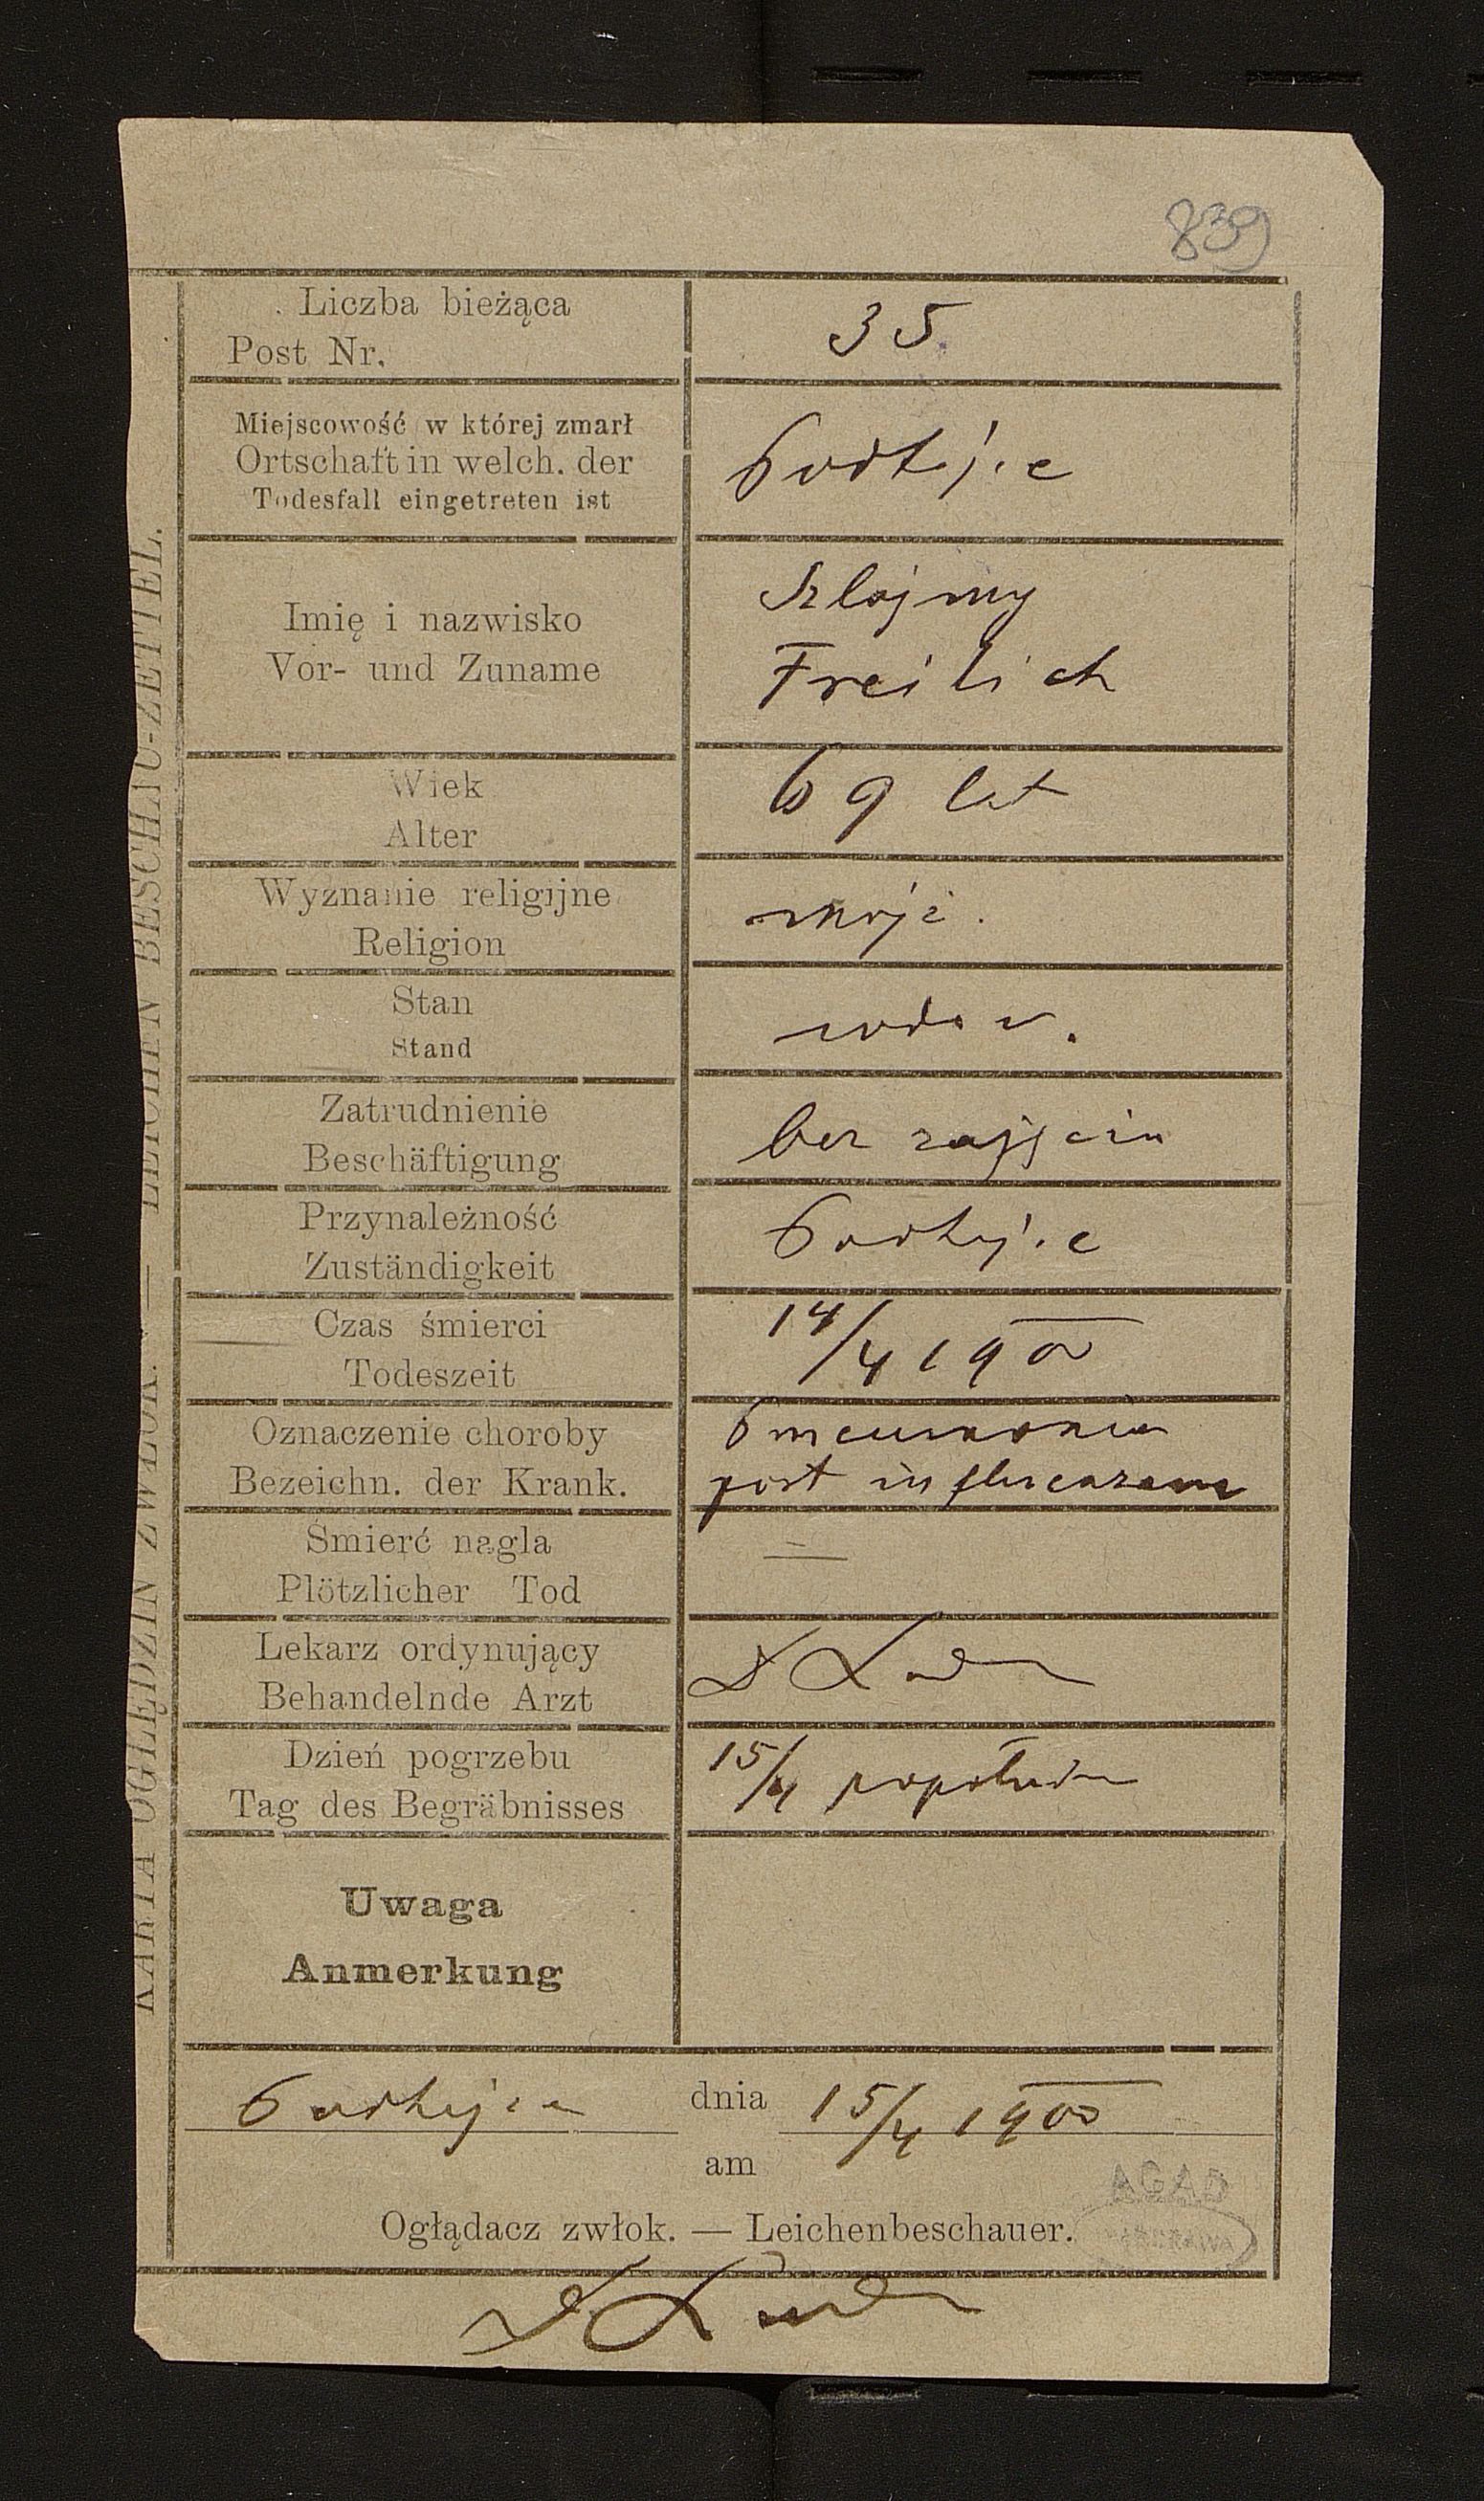 839
Liczba bieżąca
Post Nr.
35.
Miejscowość w której zmarł
Ortschaft in welch. der
Todesfall eingetreten ist
Podhajce
Imię i nazwisko
Vor- und Zuname
Szlojmy
Freilich
Wiek
Alter
69 lat
Wyznanie religijne
Religion
mojż.
Stan
Stand
wdow.
Zatrudnienie
Beschäftigung
bez zajęcia
Przynależność
Zuständigkeit
Podhajce
Czas śmierci
Todeszeit
14/4 1900
Oznaczenie choroby
Bezeichn. der Krank.
Pneumonia
post influenzam
Śmierć nagla
Plötzlicher Tod
=
Lekarz ordynujący
Behandelnde Arzt
Dzień pogrzebu
Tag des Begräbnisses
15/4 popołudn
Uwaga
Anmerkung
Podhajce dnia 15/4 1900
am
Oglądacz zwłok. — Leichenbeschauer.
AGAD
WARSZAWA
KARTA OGLĘDZIN ZWŁOK. — LEICHEN BESCHAU-ZETTEL.